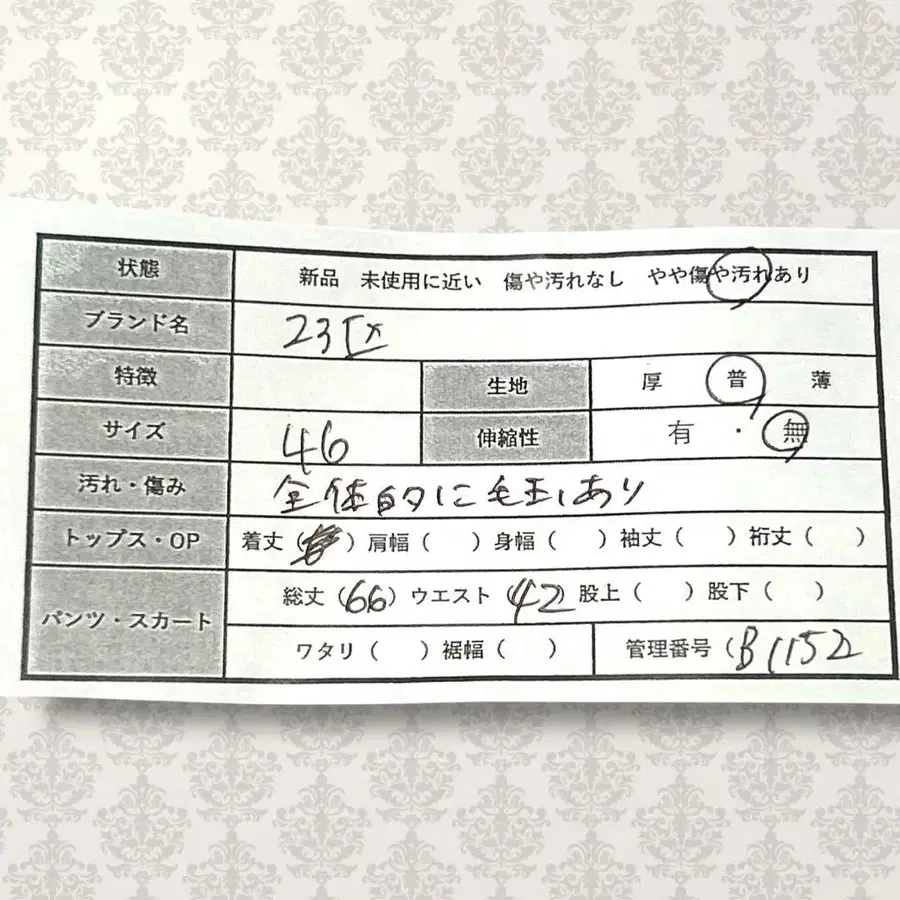 状態 新品 未使用に近い 傷や汚れなし やや傷や汚れあり
ブランド名 23区
特徴 生地 厚 普 薄
サイズ 46 伸縮性 有 ・ 無
汚れ・傷み 全体的に毛玉あり
トップス・OP 着丈( ) 肩幅( ) 身幅( ) 袖丈( ) 裄丈( )
パンツ・スカート 総丈(66) ウエスト(42) 股上( ) 股下( )
ワタリ( ) 裾幅( ) 管理番号(B1152